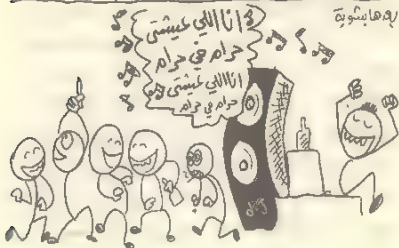 بعدها بشوية
انا اللي عيشتى
حرام في حرام
انا اللي عيشتى
حرام في حرام